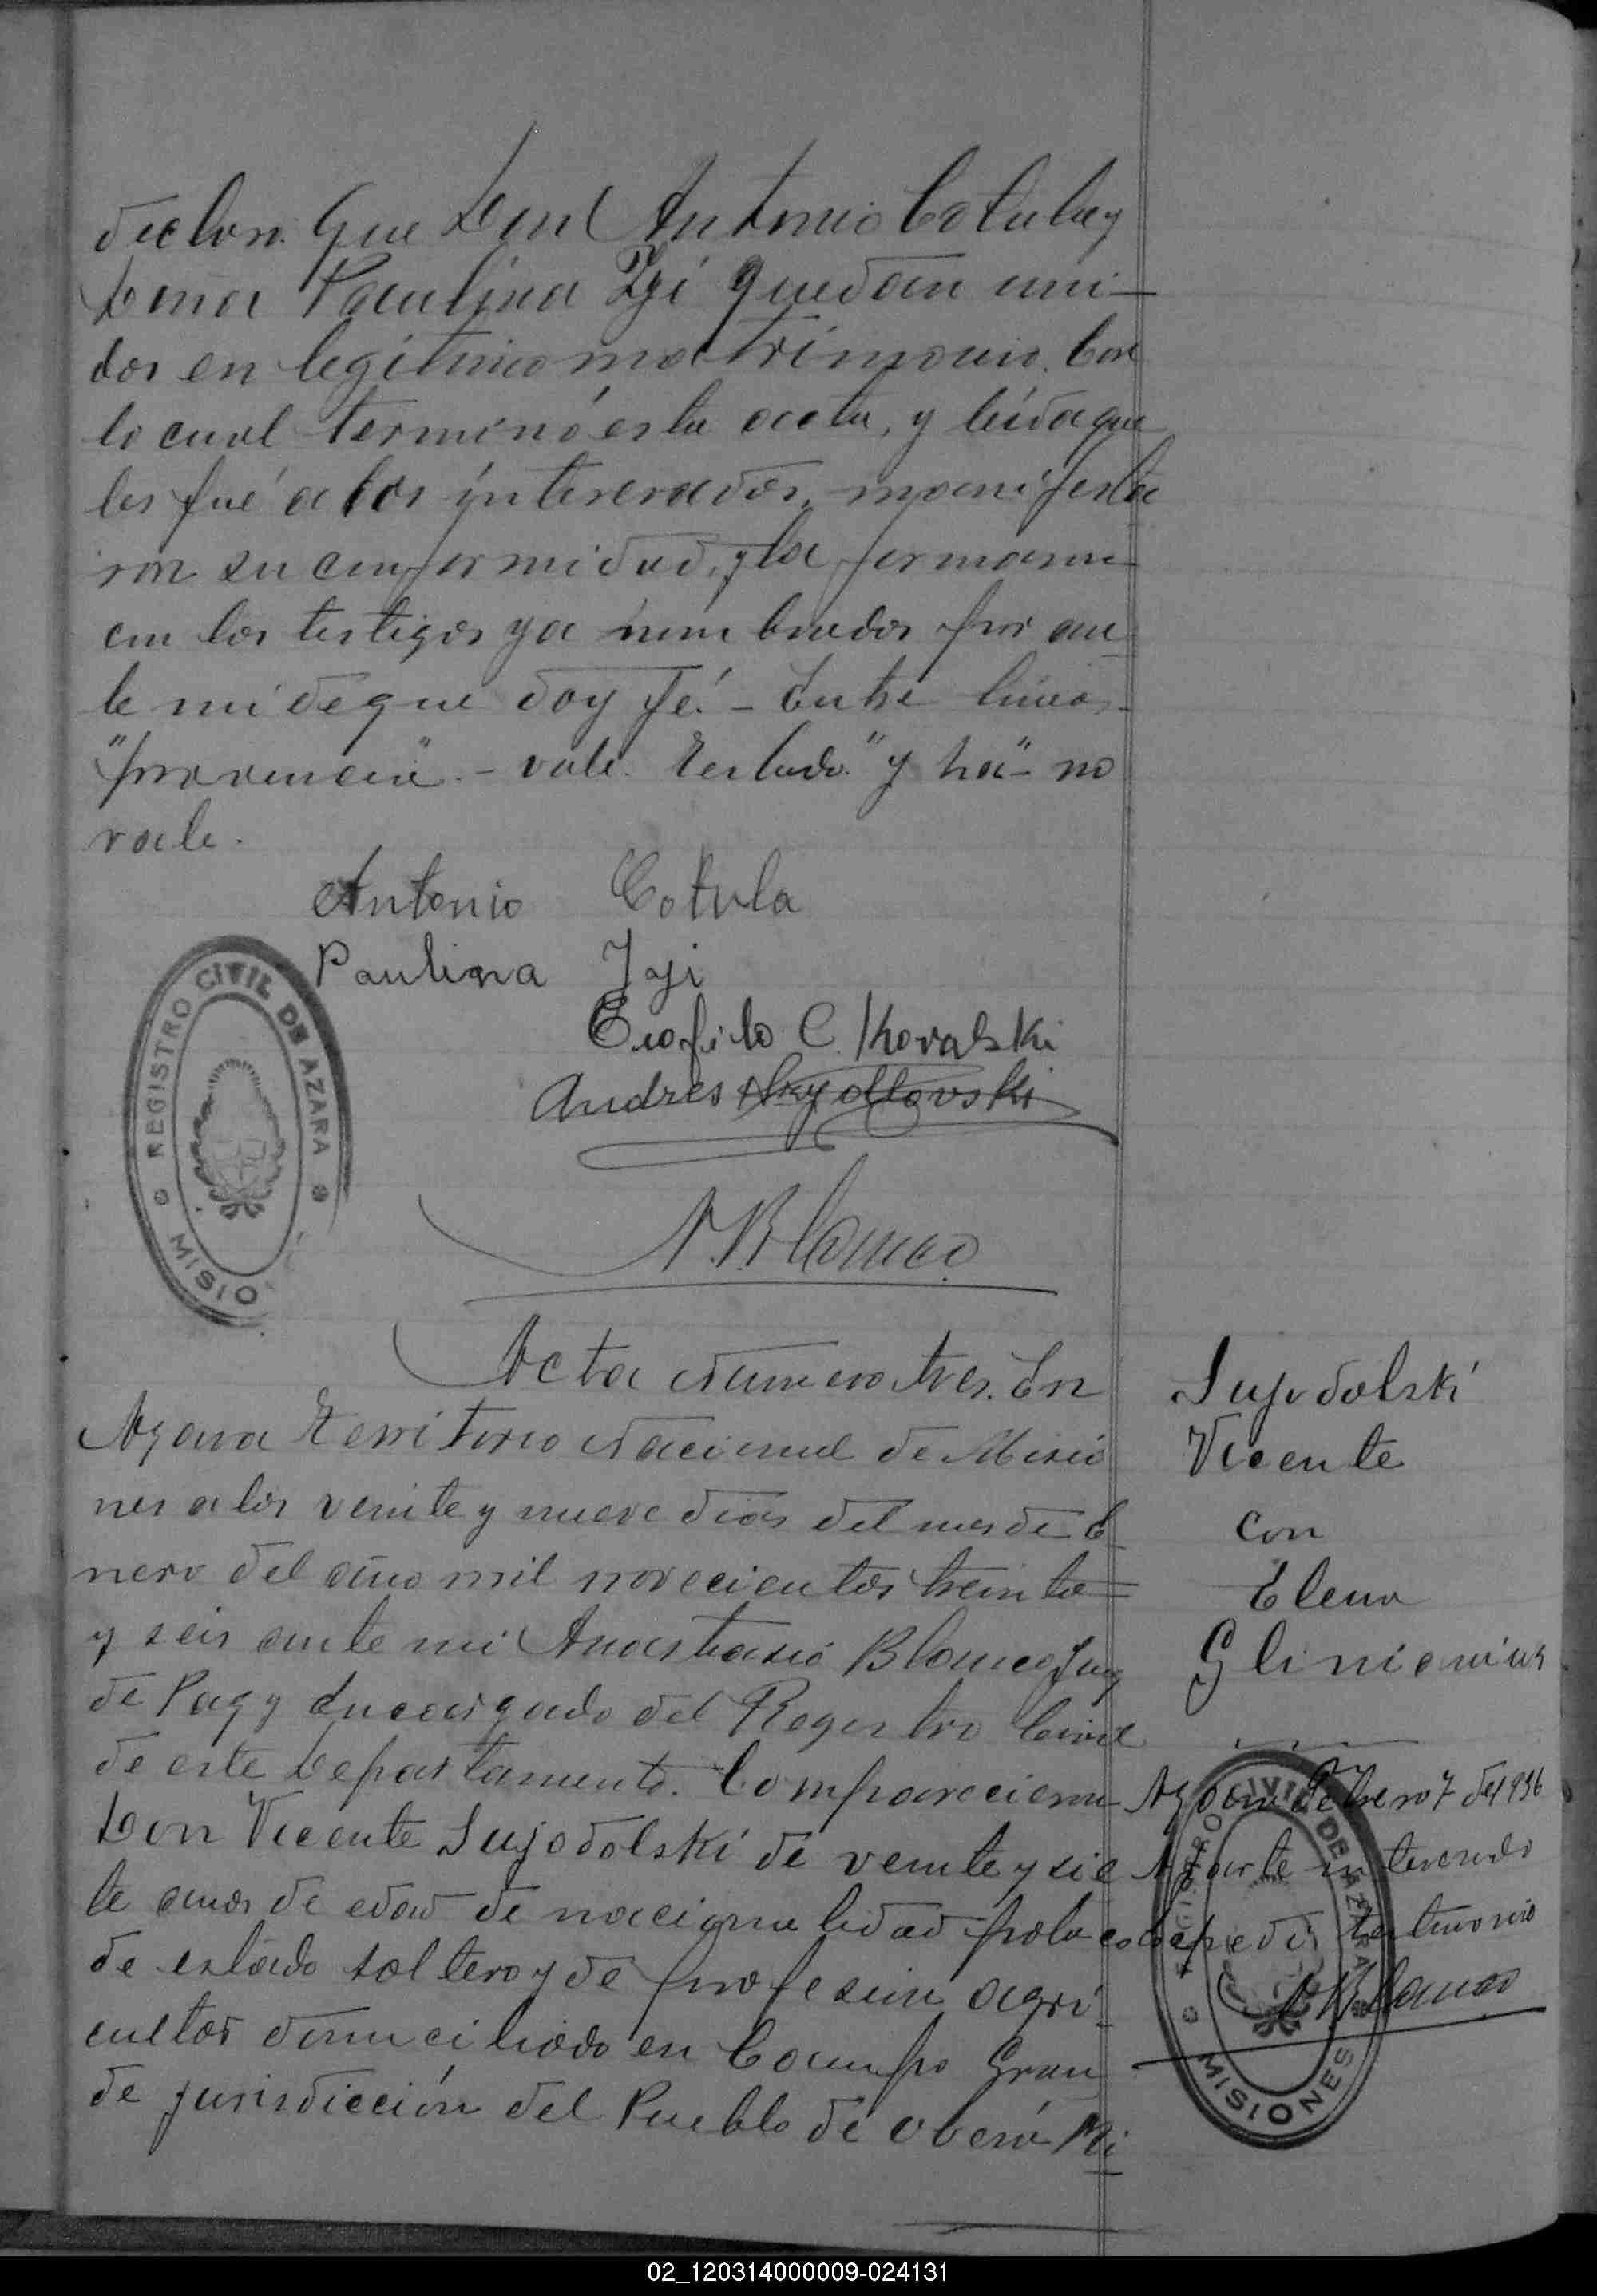 declaro. Que Don Antonio Cotula y
Doña Paulina Zyi quedan uni-
dos en legítimo matrimonio. Con
lo cual terminó esta acta, y leída que
les fué a los interesados, manifesta
ron su conformidad, y la firmaron
con los testigos ya nombrados por an-
te mi de que doy fé. - Entre lineas -
"provincia". - vale. Testado. "y ha" - no
vale.
Antonio Cotula
Paulina Jyi
Teofilo C. Kovalski
Andres
A. Blanco
REGISTRO CIVIL DE AZARA
MISIO
Acta Número tres. En
Azara Territorio Nacional de Misio
nes a los veinte y nueve dias del mes de E
nero del año mil novecientos treinta
y seis ante mi Anastasio Blanco Juez
de Paz y Encargado del Registro Civil
de este Departamento. Comparecieron
Don Vicente Sujodolski de veinte y sie
te años de edad de nacionalidad polaco
de estado soltero y de profesión agri-
cultor domiciliado en Campo Gran
de jurisdicción del Pueblo de Oberá Mi
Sujodolski
Vicente
con
Elena
Azara Febrero 7 de 1936
A parte interesada
expedi testimonio
A. Blanco
REGISTRO CIVIL DE AZARA
MISIONES
02_120314000009-024131